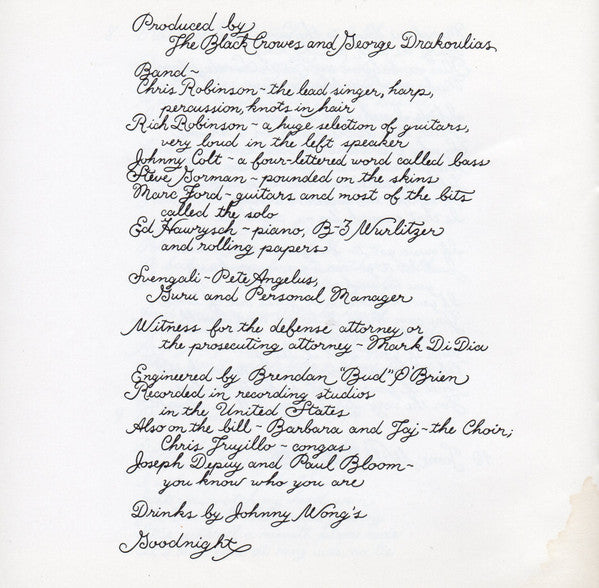 Produced by
The Black Crowes and George Drakoulias
Band~
Chris Robinson~the lead singer, harp,
percussion, knots in hair
Rich Robinson~a huge selection of guitars,
very loud in the left speaker
Johnny Colt~a four-lettered word called bass
Steve Gorman~pounded on the skins
Marc Ford~guitars and most of the bits
called the solo
Ed Hawrysch~piano, B-3 Wurlitzer
and rolling papers
Svengali~Pete Angelus,
Guru and Personal Manager
Witness for the defense attorney or
the prosecuting attorney~Mark Di Dia
Engineered by Brendan "Bud" O'Brien
Recorded in recording studios
in the United States
Also on the bill~Barbara and Taj~the Choir;
Chris Trujillo~congas
Joseph Depuy and Paul Bloom~
you know who you are
Drinks by Johnny Wong's
Goodnight